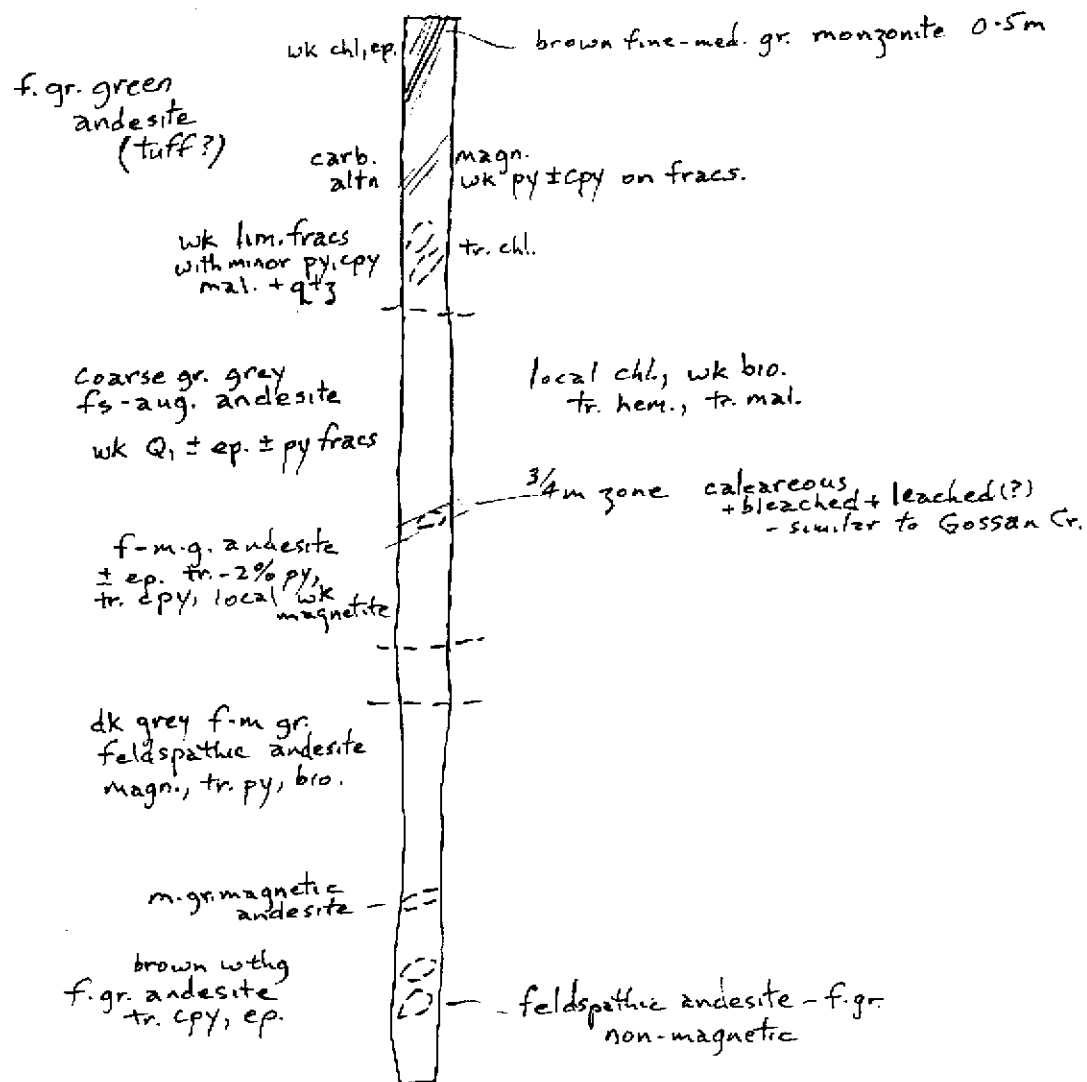 wk chl, ep.
brown fine-med. gr. monzonite 0.5m
f. gr. green
andesite
(tuff?)
carb.
altn
magn.
wk py ± cpy on fracs.
wk lim. fracs
with minor py, cpy
mal. + qtz
tr. chl.
coarse gr. grey
fs-aug. andesite
wk Q, ± ep. ± py fracs
local chl., wk bio.
tr. hem., tr. mal.
3/4 m zone calcareous
+bleached + leached(?)
- similar to Gossan Cr.
f-m.g. andesite
± ep. tr.-2% py,
tr. cpy, local wk
magnetite
dk grey f-m gr.
feldspathic andesite
magn., tr. py, bio.
m.gr. magnetic
andesite
brown wthg
f. gr. andesite
tr. cpy, ep.
feldspathic andesite - f.gr.
non-magnetic